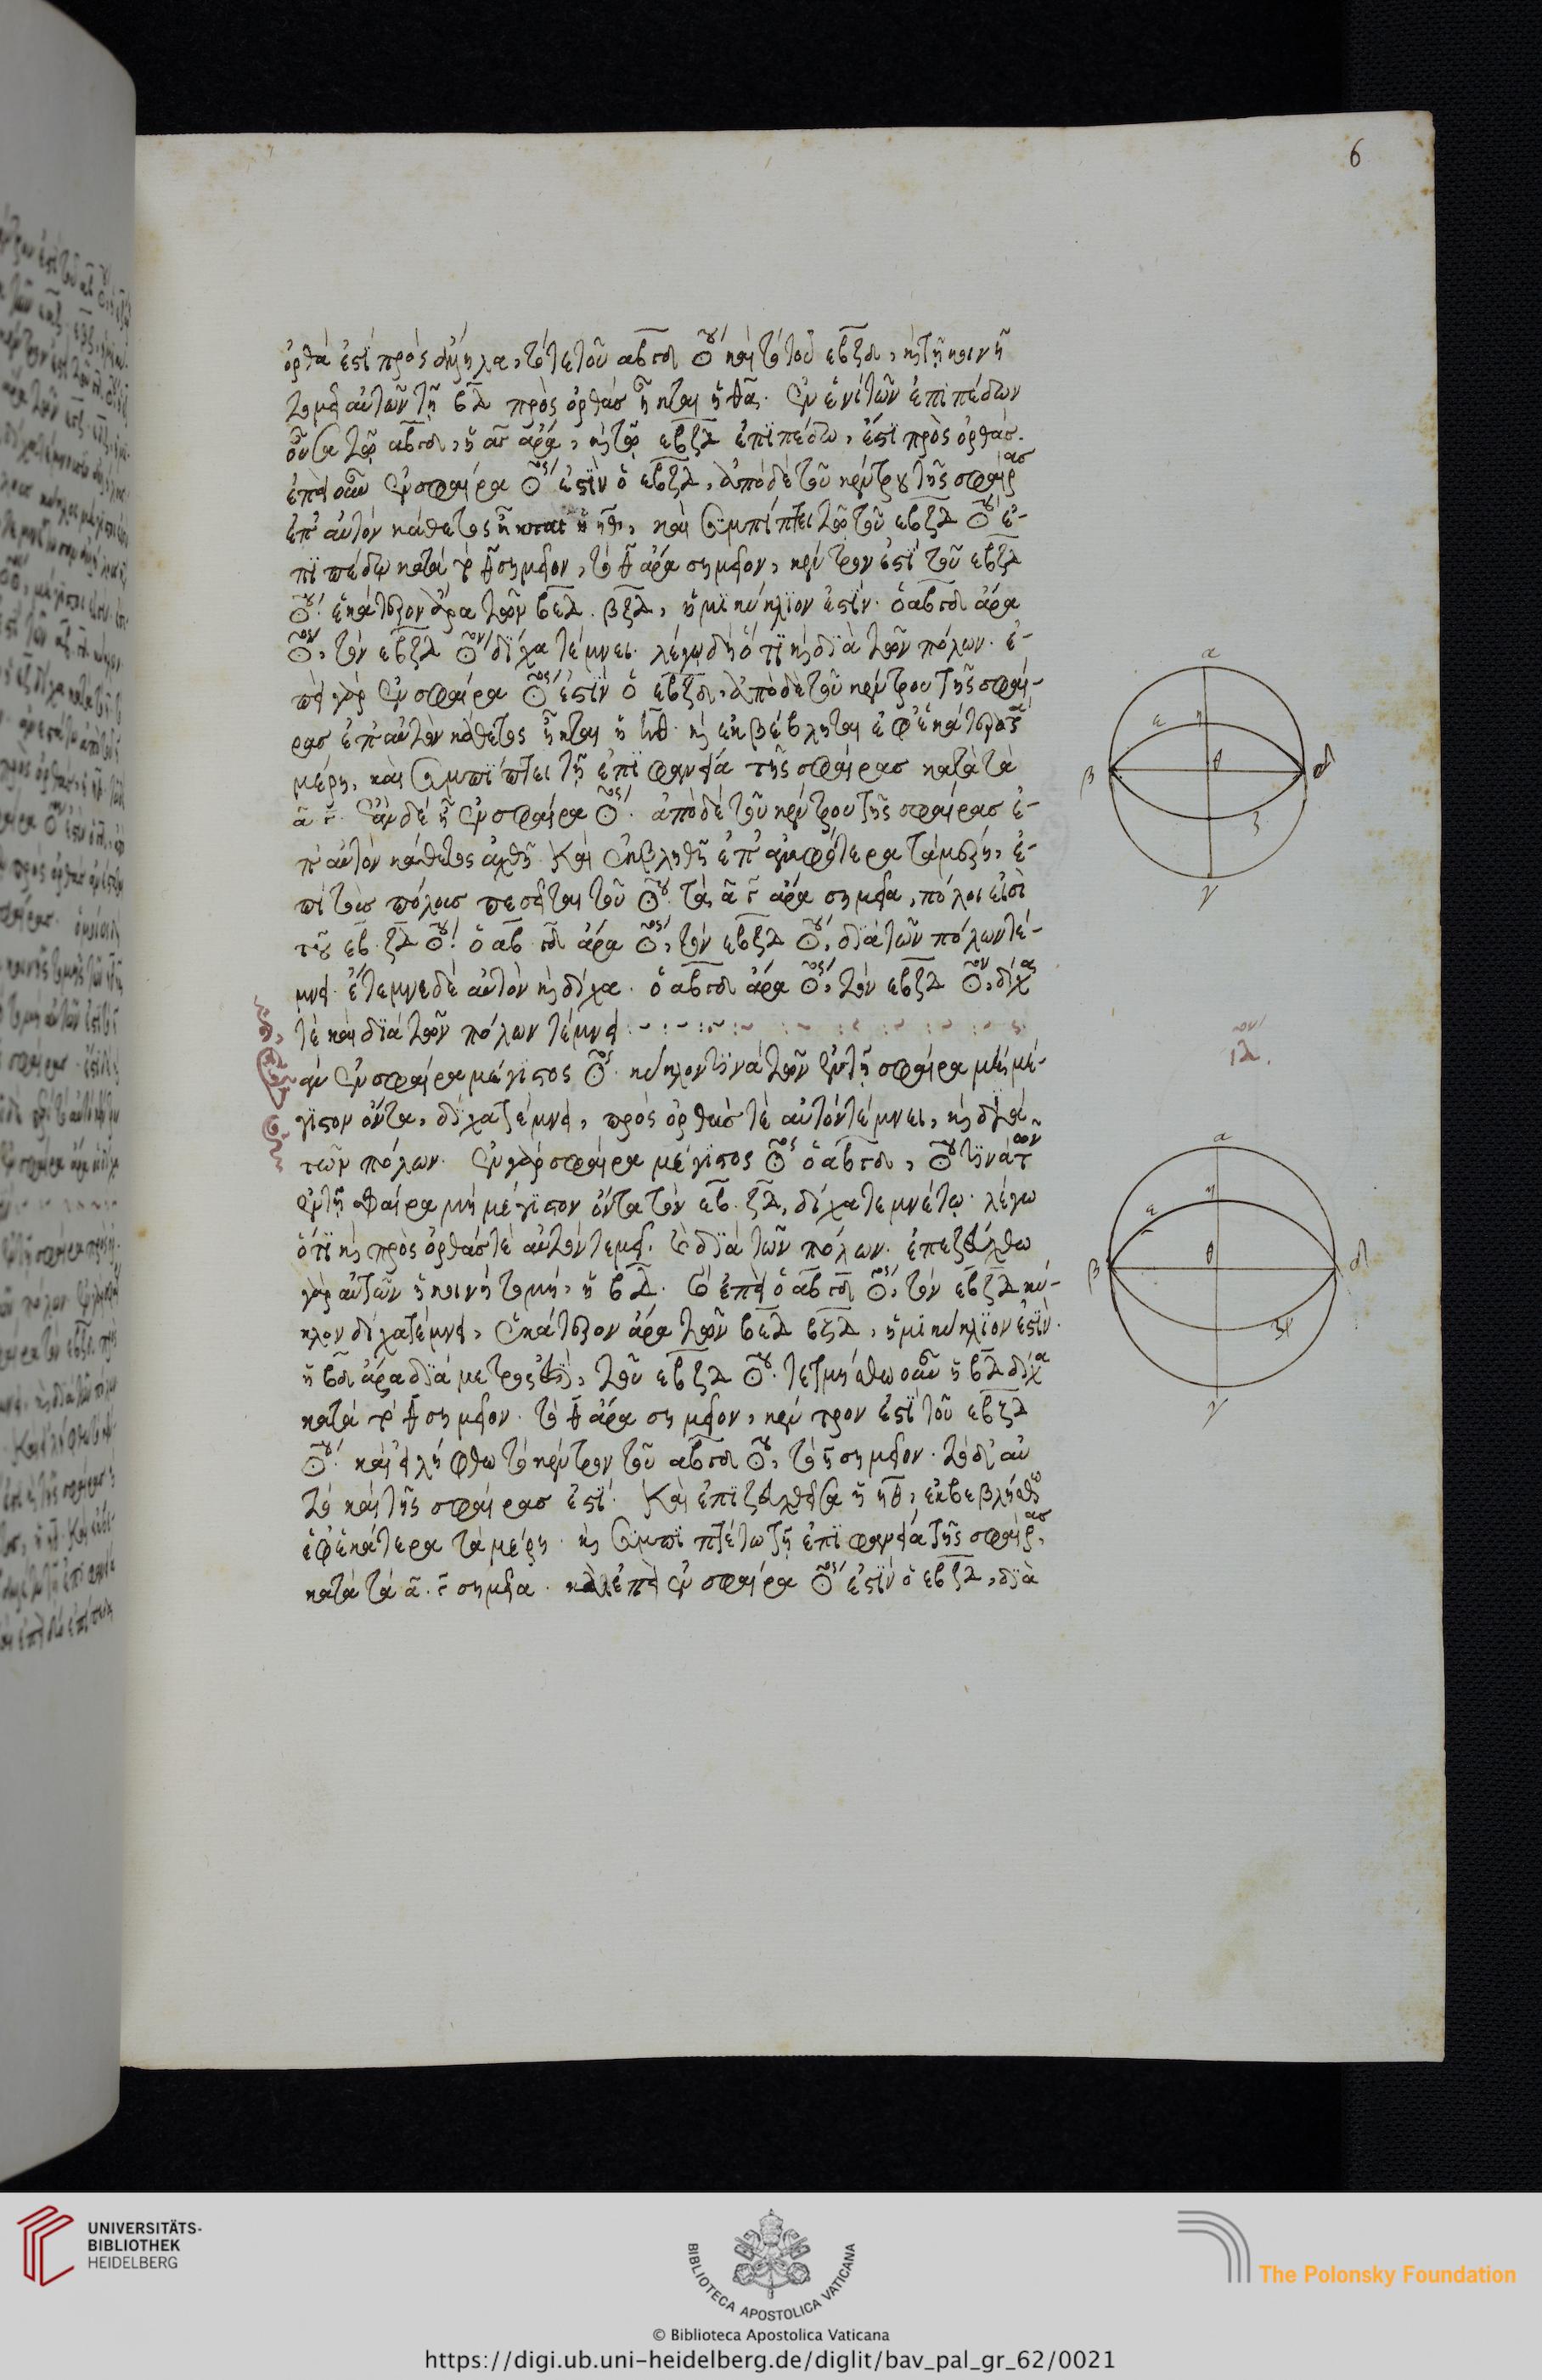 6
ὀρθά ἐστι πρὸς ἄλληλα, τό τε τοῦ αβγδ ☉ου καὶ τὸ τοῦ εβζδ, καὶ τῇ κοινῇ
τομῇ αὐτῶν τῇ βδ πρὸς ὀρθάς ἦκται ἡ ηθ. ἐν ἑνὶ τῶν ἐπιπέδων
οὖσα τῷ αβγδ, ἡ αγ ἄρα, καὶ τῷ εβζδ ἐπιπέδω, ἐστὶ πρὸς ὀρθάς.
ἐπεὶ οὖν ἐν σφαίρα ☉ος ἐστὶν ὁ εβζδ, ἀπὸ δὲ τοῦ κέντρου τῆς σφαίρας
ἐπ' αὐτὸν κάθετος ἦκται ἡ ηθ, καὶ συμπίπτει τῷ τοῦ εβζδ ☉ου ἐ-
πιπέδω κατὰ τὸ θ σημεῖον, τὸ θ ἄρα σημεῖον, κέντρον ἐστὶ τοῦ εβζδ
☉ου. ἑκάτερον ἄρα τῶν βεδ. βζδ, ἡμικύκλιον ἐστίν. ὁ αβγδ ἄρα
☉ον, τὸν εβζδ ☉ον δίχα τέμνει. λέγω δὴ ὅτι καὶ διὰ τῶν πόλων. ἐ-
πεὶ γὰρ ἐν σφαίρα ☉ος ἐστὶν ὁ εβζδ, ἀπὸ δὲ τοῦ κέντρου τῆς σφαί-
ρας ἐπ' αὐτὸν κάθετος ἦκται ἡ ηθ. καὶ ἐκβέβληται ἐφ' ἑκάτερα τὰ
μέρη, καὶ συμπίπτει τῇ ἐπιφανεία τῆς σφαίρας κατὰ τὰ
α γ. ἐὰν δὲ ᾖ ἐν σφαίρα ☉ος. ἀπὸ δὲ τοῦ κέντρου τῆς σφαίρας ἐ-
π' αὐτὸν κάθετος ἀχθῇ. καὶ ἐκβληθῇ ἐπ' ἀμφότερα τὰ μέρη, ἐ-
πὶ τοὺς πόλους πεσεῖται τοῦ ☉ου. τὰ α γ ἄρα σημεῖα, πόλοι εἰσὶ
τοῦ εβ. ζδ ☉ου. ὁ αβ. γδ ἄρα ☉ος, τὸν εβζδ ☉ου, διὰ τῶν πόλων τέ-
μνει. ἔτεμνε δὲ αὐτὸν καὶ δίχα. ὁ αβγδ ἄρα ☉ος, τὸν εβζδ ☉ον, δίχα
τε καὶ διὰ τῶν πόλων τέμνει :~
ἐὰν ἐν σφαίρα μέγιστος ☉ος. κύκλον τινὰ τῶν ἐν τῇ σφαίρα μὴ μέ-
γιστον ὄντα, δίχα τέμνει, πρὸς ὀρθάς τὲ αὐτὸν τέμνει, καὶ διὰ
τῶν πόλων. ἐν γὰρ σφαίρα μέγιστος ☉ος ὁ αβγδ, ☉ου τινὰ τῶν
ἐν τῇ σφαίρα μὴ μέγιστον ὄντα τὸν εβ. ζδ, δίχα τεμνέτω. λέγω
ὅτι καὶ πρὸς ὀρθάς τὲ αὐτὸν τεμεῖ. καὶ διὰ τῶν πόλων. ἐπεζεύχθω
γὰρ αὐτῶν ἡ κοινὴ τομή, ἡ βδ. καὶ ἐπεὶ ὁ αβγδ ☉ος, τὸν εβζδ κύ-
κλον δίχα τέμνει, ἑκάτερον ἄρα τῶν βεδ βζδ, ἡμικύκλιον ἐστίν.
ἡ βδ ἄρα διάμετρος ἐστὶ, τοῦ εβζδ ☉ου. τετμήσθω οὖν ἡ βδ δίχα
κατὰ τὸ θ σημεῖον. τὸ θ ἄρα σημεῖον, κέντρον ἐστὶ τοῦ εβζδ
☉ου. καὶ εἰλήφθω τὸ κέντρον τοῦ αβγδ ☉ου, τὸ η σημεῖον. τὸ δ' αὐ
τὸ καὶ τῆς σφαίρας ἐστί. καὶ ἐπιζευχθεῖσα ἡ ηθ, ἐκβεβλήσθω
ἐφ' ἑκάτερα τὰ μέρη. καὶ συμπιπτέτω τῇ ἐπιφανεία τῆς σφαίρας,
κατὰ τὰ α. γ σημεῖα. καὶ ἐπεὶ ἐν σφαίρα ☉ος ἐστὶν ὁ εβζδ, διὰ
α
ε η
β θ δ
ζ
γ
ιδ.
α
ε η
β θ δ
ζ
γ
UNIVERSITÄTS-
BIBLIOTHEK
HEIDELBERG
BIBLIOTECA APOSTOLICA VATICANA
The Polonsky Foundation
© Biblioteca Apostolica Vaticana
https://digi.ub.uni-heidelberg.de/diglit/bav_pal_gr_62/0021